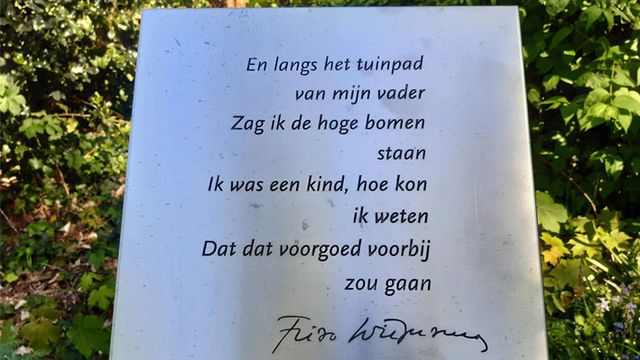 En langs het tuinpad
van mijn vader
Zag ik de hoge bomen
staan
Ik was een kind, hoe kon
ik weten
Dat dat voorgoed voorbij
zou gaan